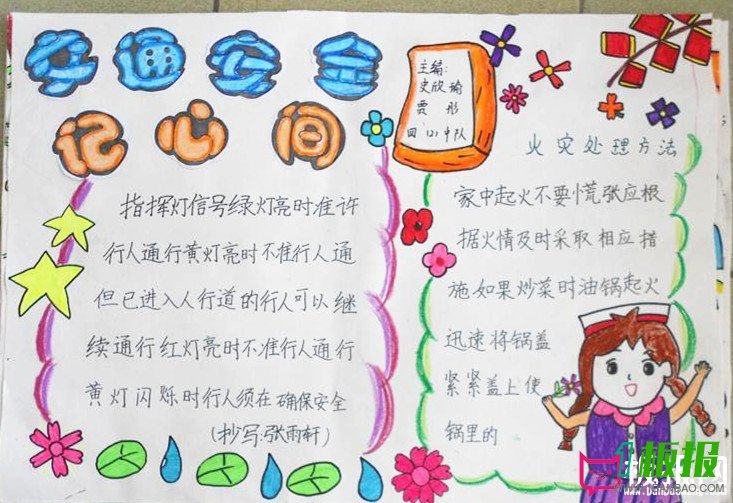 交通安全
记心间
指挥灯信号绿灯亮时准许
行人通行黄灯亮时不准行人通
但已进入人行道的行人可以继
续通行红灯亮时不准行人通行
黄灯闪烁时行人须在确保安全
(抄写:张雨轩)
主编:
史欣瑜
贾彤
四(2)中队
火灾处理方法
家中起火不要慌张应根
据火情及时采取相应措
施如果炒菜时油锅起火
迅速将锅盖
紧紧盖上使
锅里的
板报